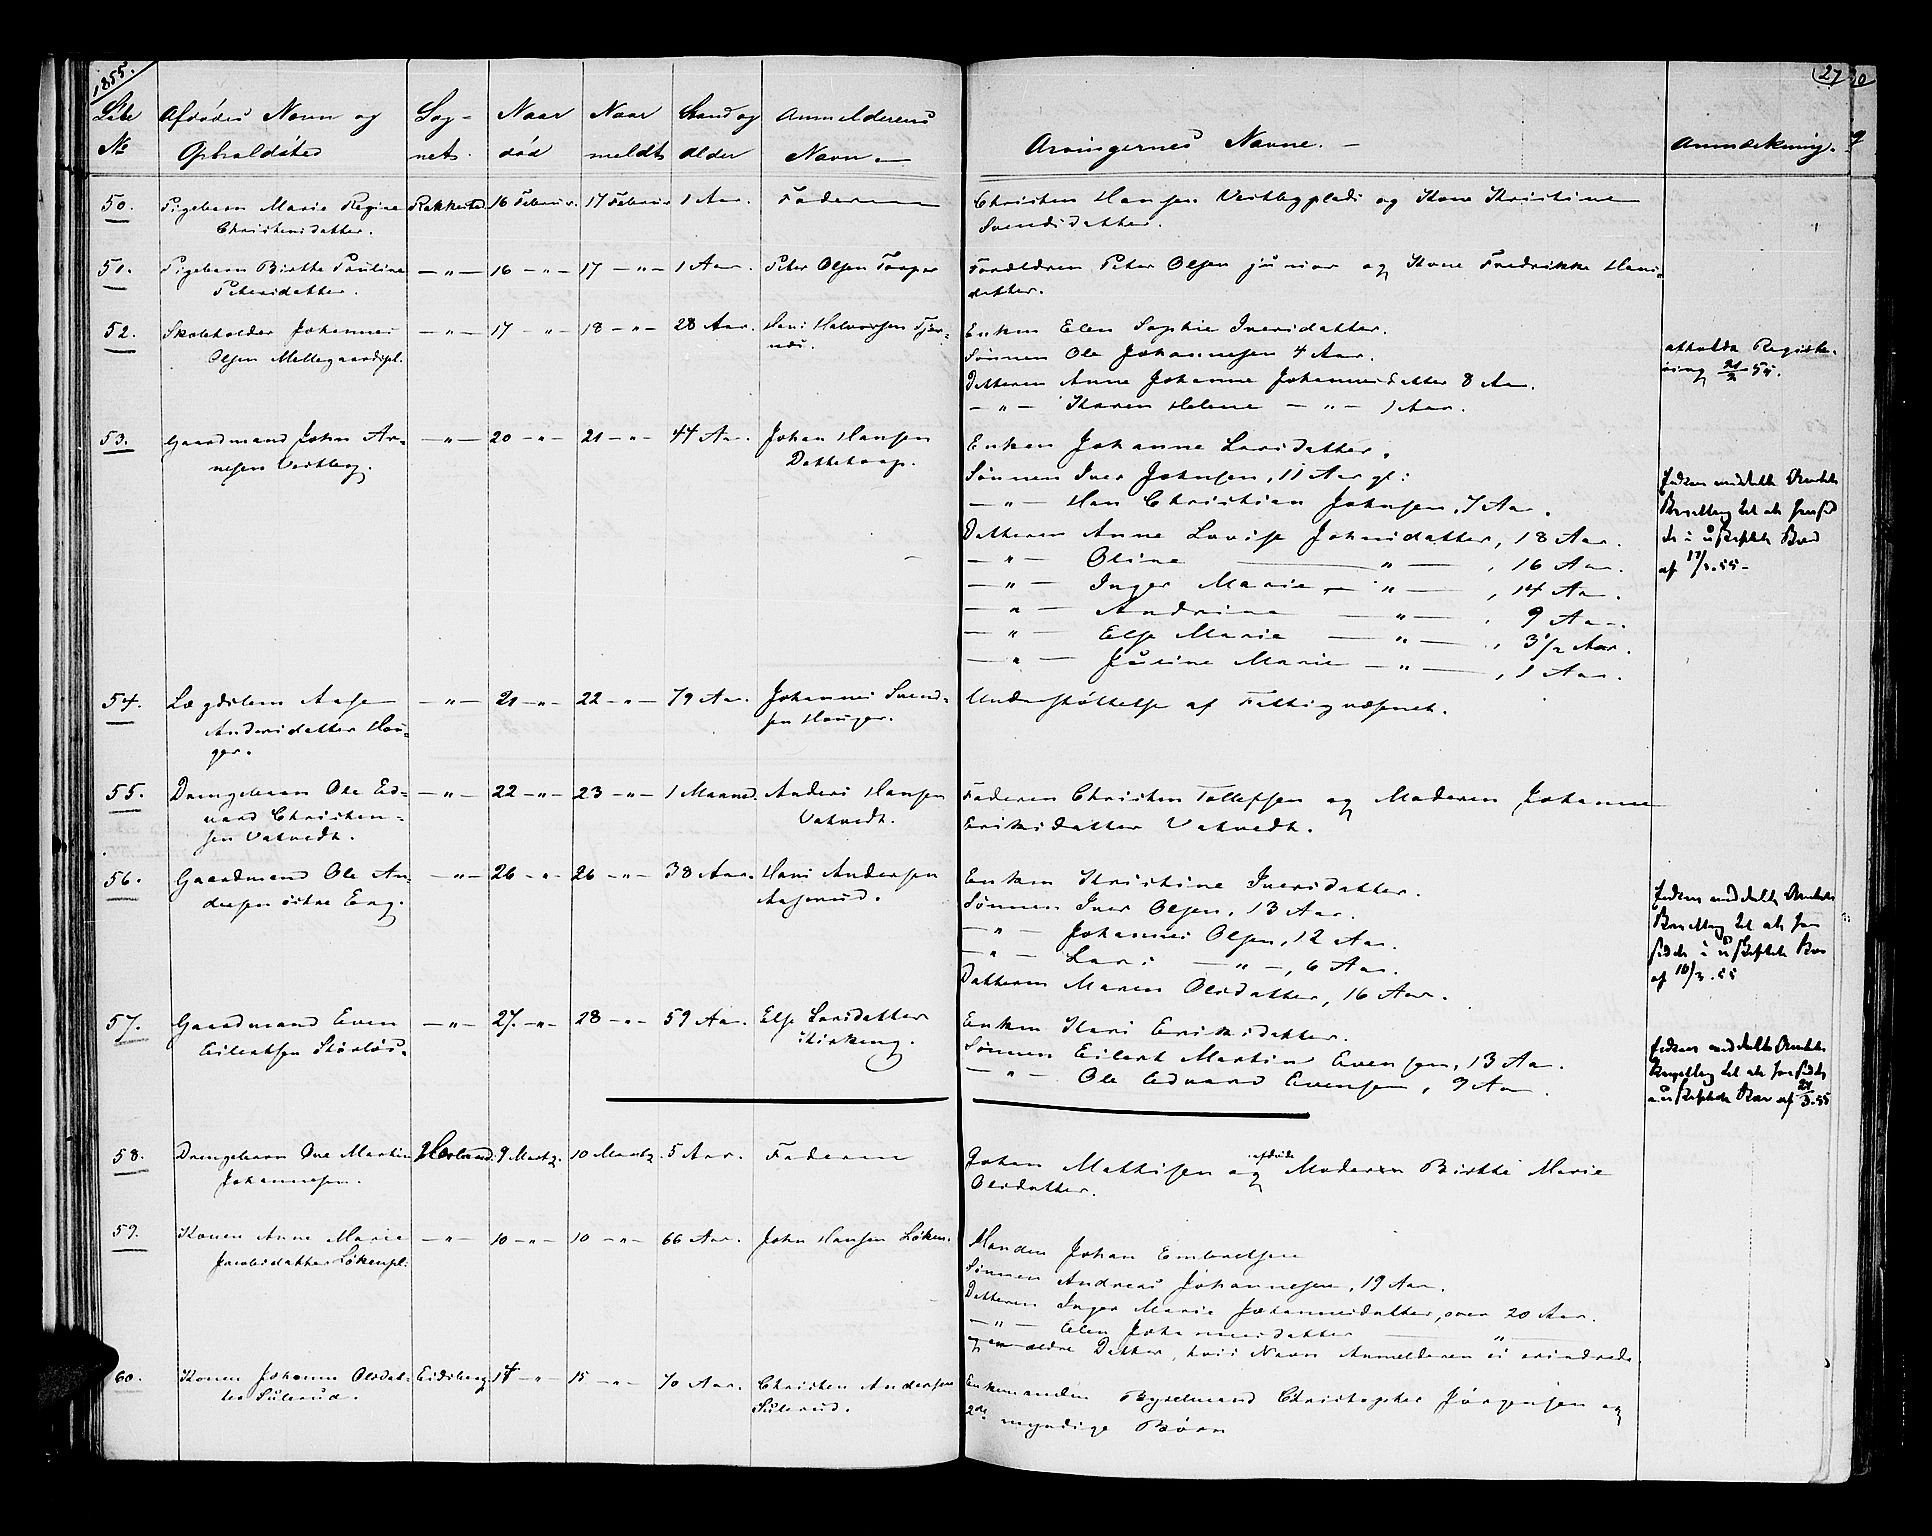 1855.
27
Løbe No
Afdødes Navn og Opholdsted
Sognet.
Naar død
Naar meldt
Stand og alder
Anmelderens Navn.
Arvingernes Navne.
Anmærkning.
50. Pigebarn Marie Regine Rakkestad 16 Februar 17 Februar 1 Aar. Faderen Christen Hansen Vestbyplads og Kone Kristine
Christensdatter. Svendsdatter.
51. Pigebarn Birthe Pauline — " — 16 — " — 17 — " — 1 Aar. Peter Olsen Torper Forældren Peter Olsen junior og Kone Fredrikke Hans-
Petersdatter. datter.
52. Skoleholder Johannes — " — 17 — " — 18 — " — 28 Aar. Hans Halvorsen Enken Elen Sophie Iversdatter.
Olsen Mellegaardspl. Sønnen Ole Johannesen 4 Aar.
Datteren Anne Johanne Johannesdatter 8 Aar.
— " — Karen Helene — " — 1 Aar.
afholdt Registe-
ring 21/2 55.
53. Gaardmand John Ar- — " — 20 — " — 21 — " — 44 Aar. Johan Hansen Enken Johanne Larsdatter.
nesen Vestby. Dettetorp.
Sønnen Iver Johnsen, 11 Aar gl:
— " — Hans Christian Johnsen, 7 Aar.
Datteren Anne Lovise Johnsdatter, 18 Aar.
— " — Oline — " — , 16 Aar.
— " — Inger Marie — " — , 14 Aar.
— " — Andrine — " — , 9 Aar.
— " — Else Marie — " — , 3 1/2 Aar.
— " — Juline Marie — " — , 1 Aar.
Enken meddelt Amtets
Bevilling til at hensid
de i uskiftet Bo
af 17/3.55
54. Lægdslem Aase — " — 21 — " — 22 — " — 79 Aar. Johannes Svend- Understøttelse af Fattigvæsenet.
Andersdatter Hau- sen Hauger.
ger.
55. Drengebarn Ole Ed- — " — 22 — " — 23 — " — 1 Maaned. Anders Hansen Faderen Christen Tollefsen og Moderen Johanne
vard Christen- Vatvedt. Eriksdatter Vatvedt.
sen Vatvedt.
56. Gaardmand Ole An- — " — 26 — " — 26 — " — 38 Aar. Hans Andersen Enken Kristine Iversdatter.
dersen østre Eng. Aaserud.
Sønnen Iver Olsen, 13 Aar.
— " — Johannes Olsen, 12 Aar.
— " — Lars — " —, 6 Aar.
Datteren Maren Olsdatter, 16 Aar.
Enken meddelt Amtets
Bevilling til at hen
sidde i uskiftet Bo
af 10/3.55
57. Gaardmand Even — " — 27. — " — 28 — " — 59 Aar. Else Larsdatter Enken Kari Eriksdatter.
Eilertsen Kirkeng.
Sønnen Eilert Martin Evensen, 13 Aar.
— " — Ole Edvard Evensen, 9 Aar
Enken meddelt Amtets
Bevilling til at hensidde
i uskiftet Bo af 21/3.55
58. Drengebarn Ove Martin Hærland. 9 Marts. 10 Marts. 5 Aar. Faderen Johan Mathisen og afdøde Moderen Birthe Marie
Johannesen. Olsdatter.
59. Konen Anne Marie — " — 10 — " — 10 — " — 66 Aar. John Hansen Løken. Manden Johan Embretsen
Jacobsdatter Løkenpl:
Sønnen Andreas Johannesen, 19 Aar.
Datteren Inger Marie Johannesdatter, over 20 Aar.
— " — Elen Johannesdatter — " —
og en ældre Datter, hvis Navn Anmelderen ei erindrede.
60. Konen Johanne Olsdat- Eidsberg 14 — " — 15 — " — 70 Aar. Christen Andersen Enkemanden Christopher Jørgensen og
ter Sulerud. Sulerud. 2de myndige Børn